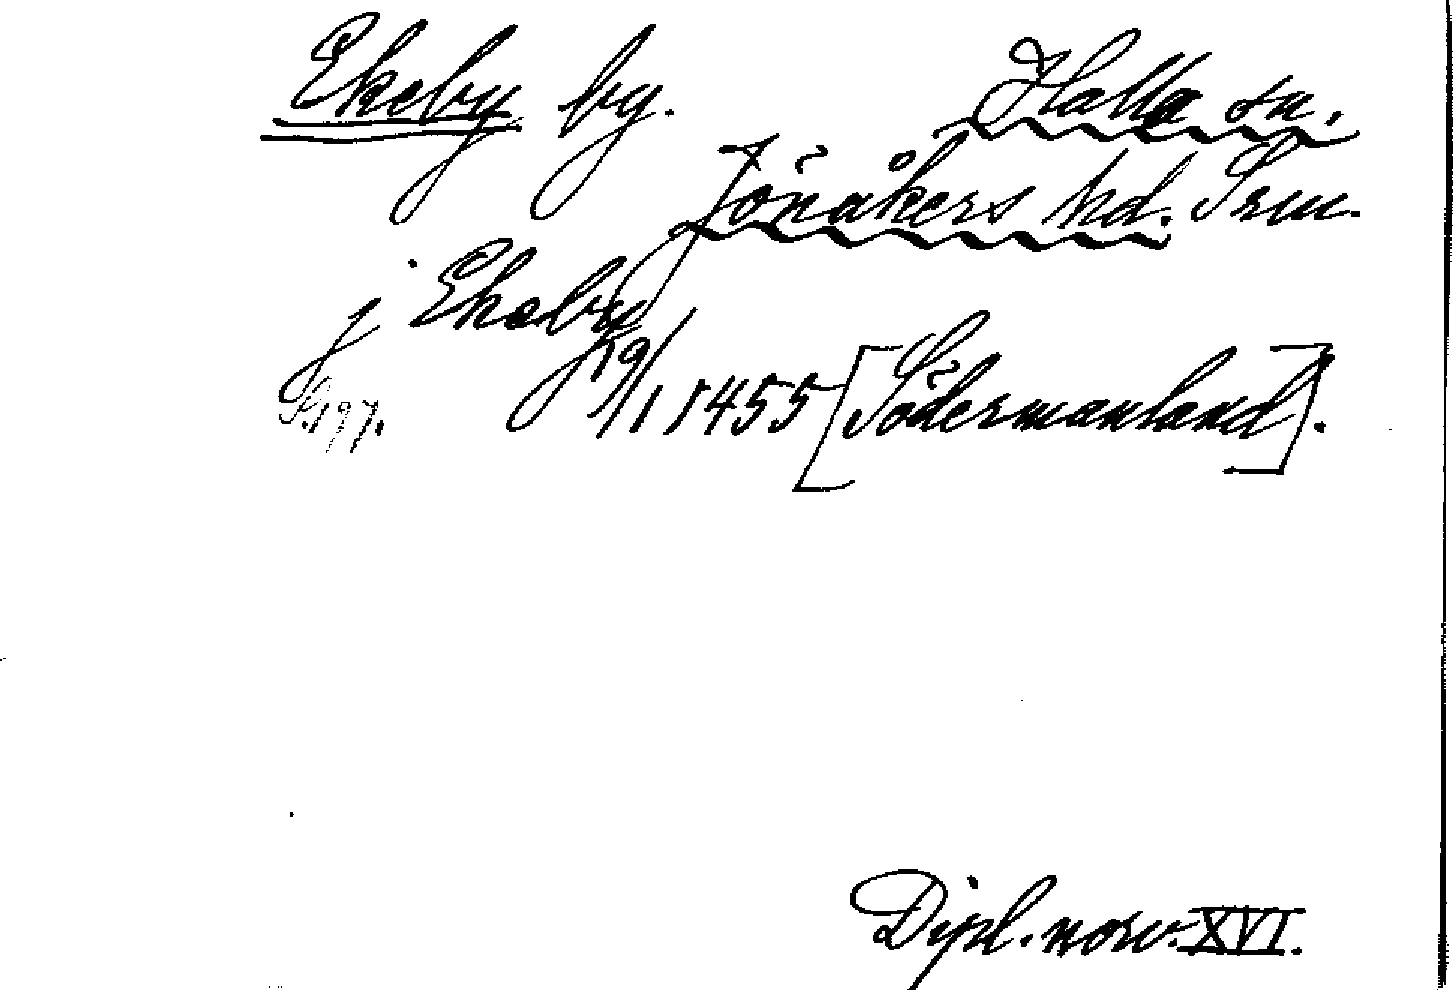 Ekeby by. Halla sn.
Jönåkers hd. Srm.
j Ekeby
S.197. 19/1 1455 [Södermanland].
Dipl. norv. XVI.